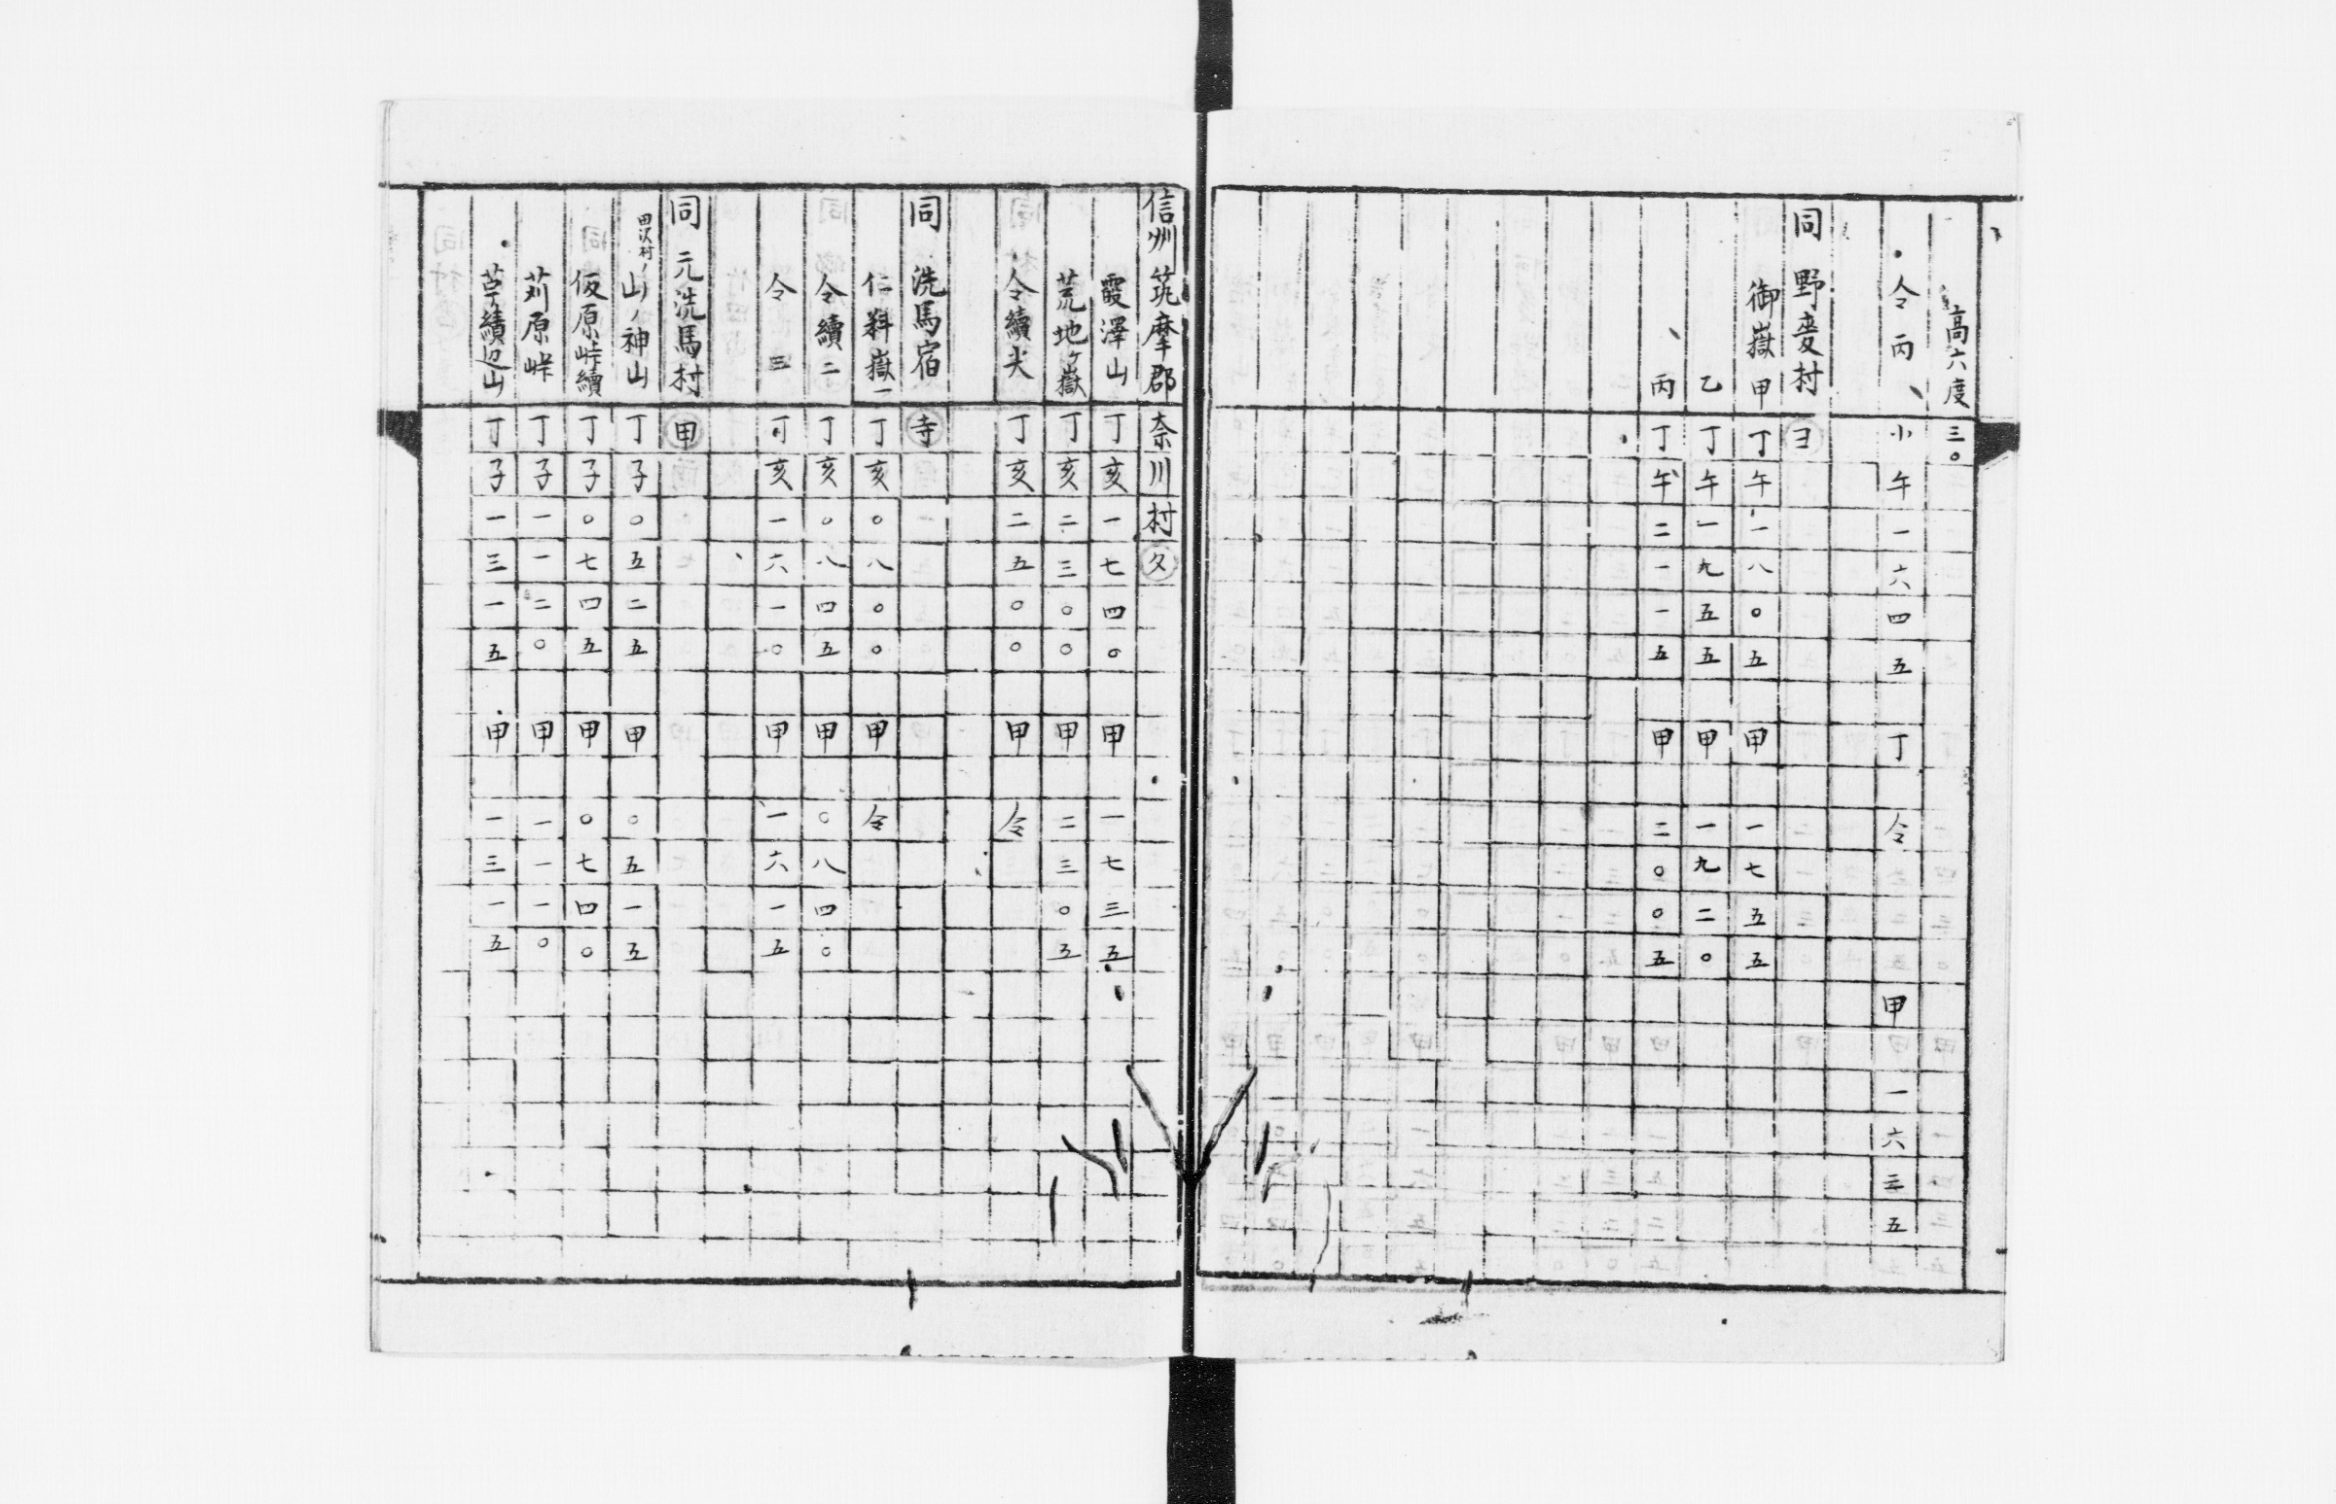 高六度 三〇
仝 丙 小午一六四五 丁 仝 甲 一六三五
同 野麦村 ヨ
御嶽 甲 丁午一八〇五 甲 一七五五
乙 丁午一九五五 甲 一九二〇
丙 丁午二一一五 甲 二〇〇五
信州筑摩郡奈川村 久
霞澤山 丁亥一七四〇 甲 一七三五
荒地ケ嶽 丁亥二三〇〇 甲 二三〇五
仝續尖 丁亥二五〇〇 甲 仝
同 洗馬宿 寺
仁料嶽一 丁亥〇八〇〇 甲 仝
仝續二 丁亥〇八四五 甲 〇八四〇
仝 三 丁亥一六一〇 甲 一六一五
同 元洗馬村 甲
田沢村ノ山ノ神山 丁子〇五二五 甲 〇五一五
仮原峠續 丁子〇七四五 甲 〇七四〇
苅原峠 丁子一一二〇 甲 一一一〇
續辺山 丁子一三一五 甲 一三一五